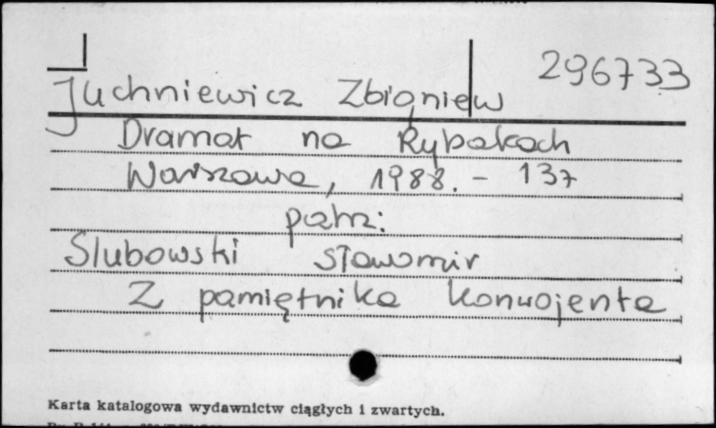 296733
Juchniewicz Zbigniew
Dramat na Rybakach
Warszawa, 1988. - 137
patrz:
Slubowski Sławomir
Z pamiętnika konwojenta
Karta katalogowa wydawnictw ciągłych i zwartych.